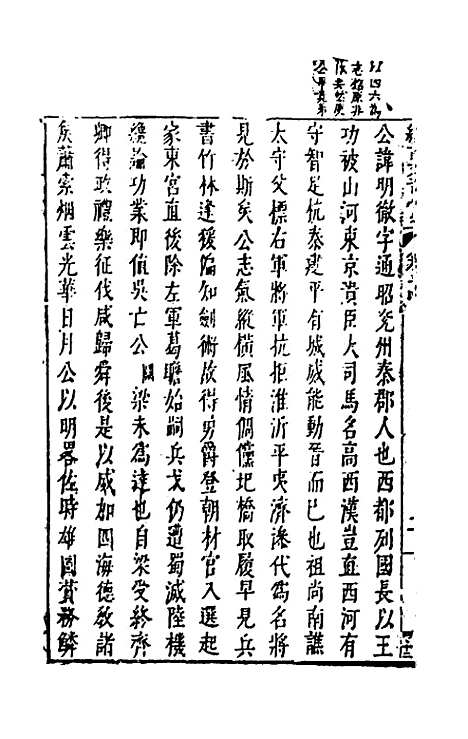 公諱明徹字通昭兗州秦郡人也西都列國長以王
功被山河東京貴臣大司馬名高西漢豈直西河有
守智足抗秦建平有城威能動晉而已也祖尚南譙
太守父標右軍將軍抗拒淮沂平夷濟漯代為名將
見於斯矣公志氣縱橫風情倜儻圯橋取履早見兵
書竹林逢猨偏知劍術故得男爵登朝材官入選起
家東宮直後除左軍葛瞻始嗣兵戈仍遭蜀滅陸機
纔論功業即值吳亡公 梁未為達也自梁受終齊
卿得政禮樂征伐咸歸舜後是以威加四海德教諸
侯蕭索烟雲光華日月公以明畧佐時雄圖贊務鱗